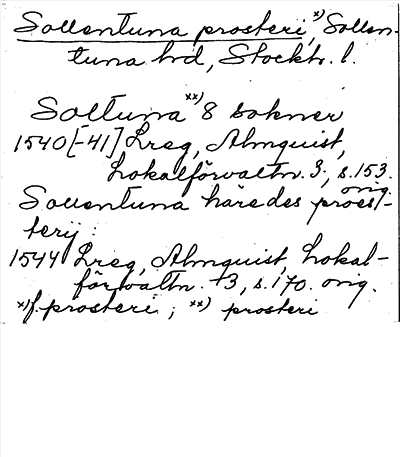 Sollentuna prosteri x), Sollen-
tuna hd, Stockh. l.
Soltuna xx) 8 sokner
1540[-41] Lreg, Almquist,
Lokalförvaltn. 3, s. 153.
orig.
Sollentuna häredes proest-
terij :
1544 Lreg, Almquist, Lokal-
förvaltn. 3, s. 170. orig.
x) f. prosteri ; xx) prosteri